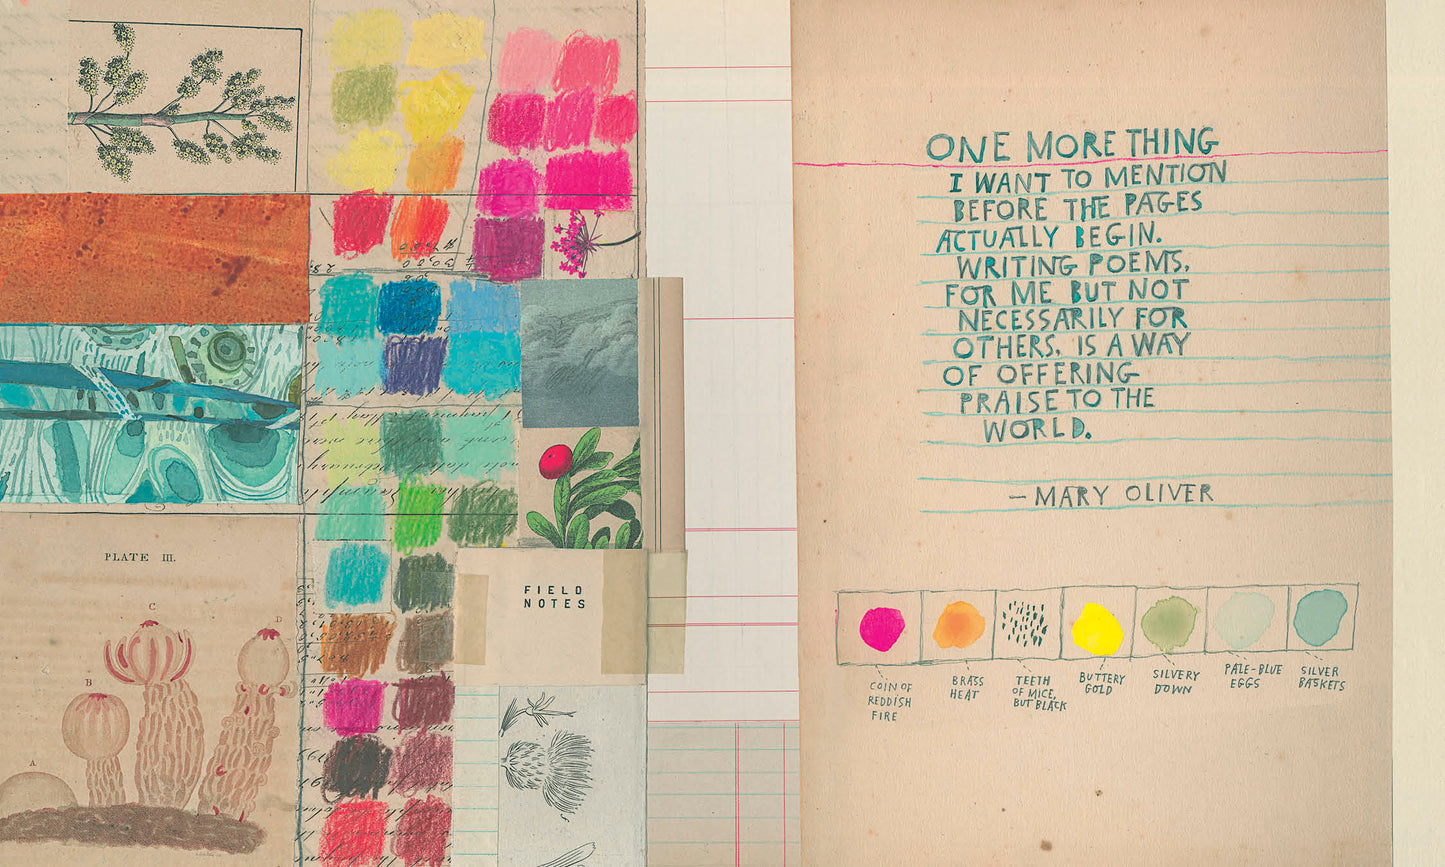 PLATE III.
C
D
B
A
FIELD
NOTES
ONE MORE THING
I WANT TO MENTION
BEFORE THE PAGES
ACTUALLY BEGIN.
WRITING POEMS,
FOR ME BUT NOT
NECESSARILY FOR
OTHERS, IS A WAY
OF OFFERING
PRAISE TO THE
WORLD.
– MARY OLIVER
COIN OF
REDDISH
FIRE
BRASS
HEAT
TEETH
OF MICE,
BUT BLACK
BUTTERY
GOLD
SILVERY
DOWN
PALE-BLUE
EGGS
SILVER
BASKETS